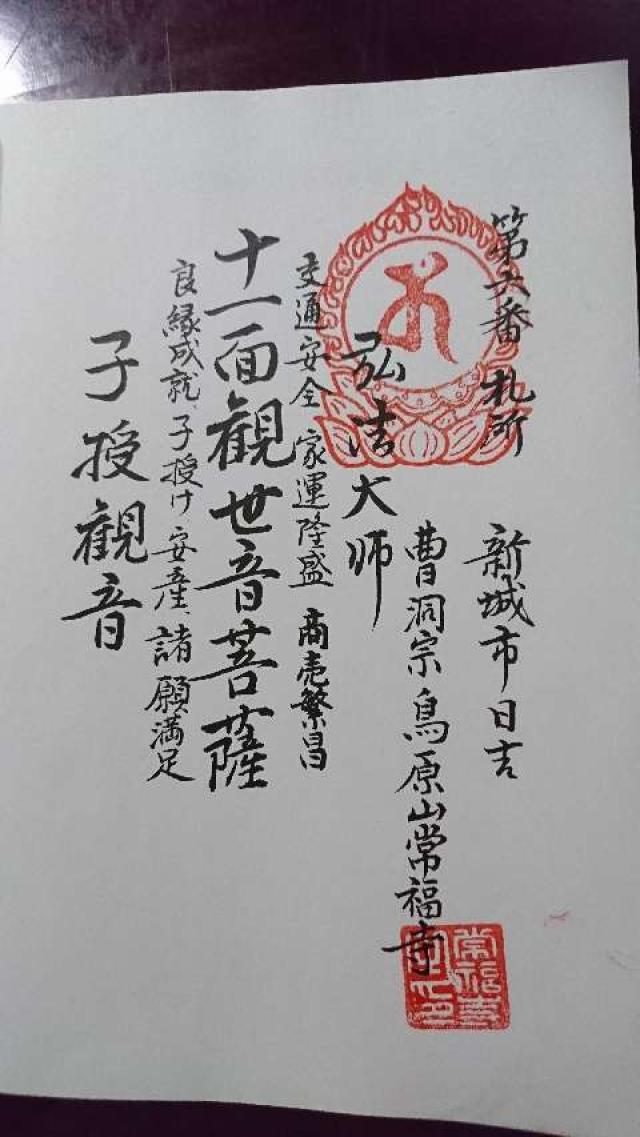 第六番 札所
新城市日吉
曹洞宗 鳥原山常福寺
弘法大师
交通安全 家運隆盛 商売繁昌
十一面觀世音菩薩
良縁成就、子授け、安産、諸願満足
子授觀音